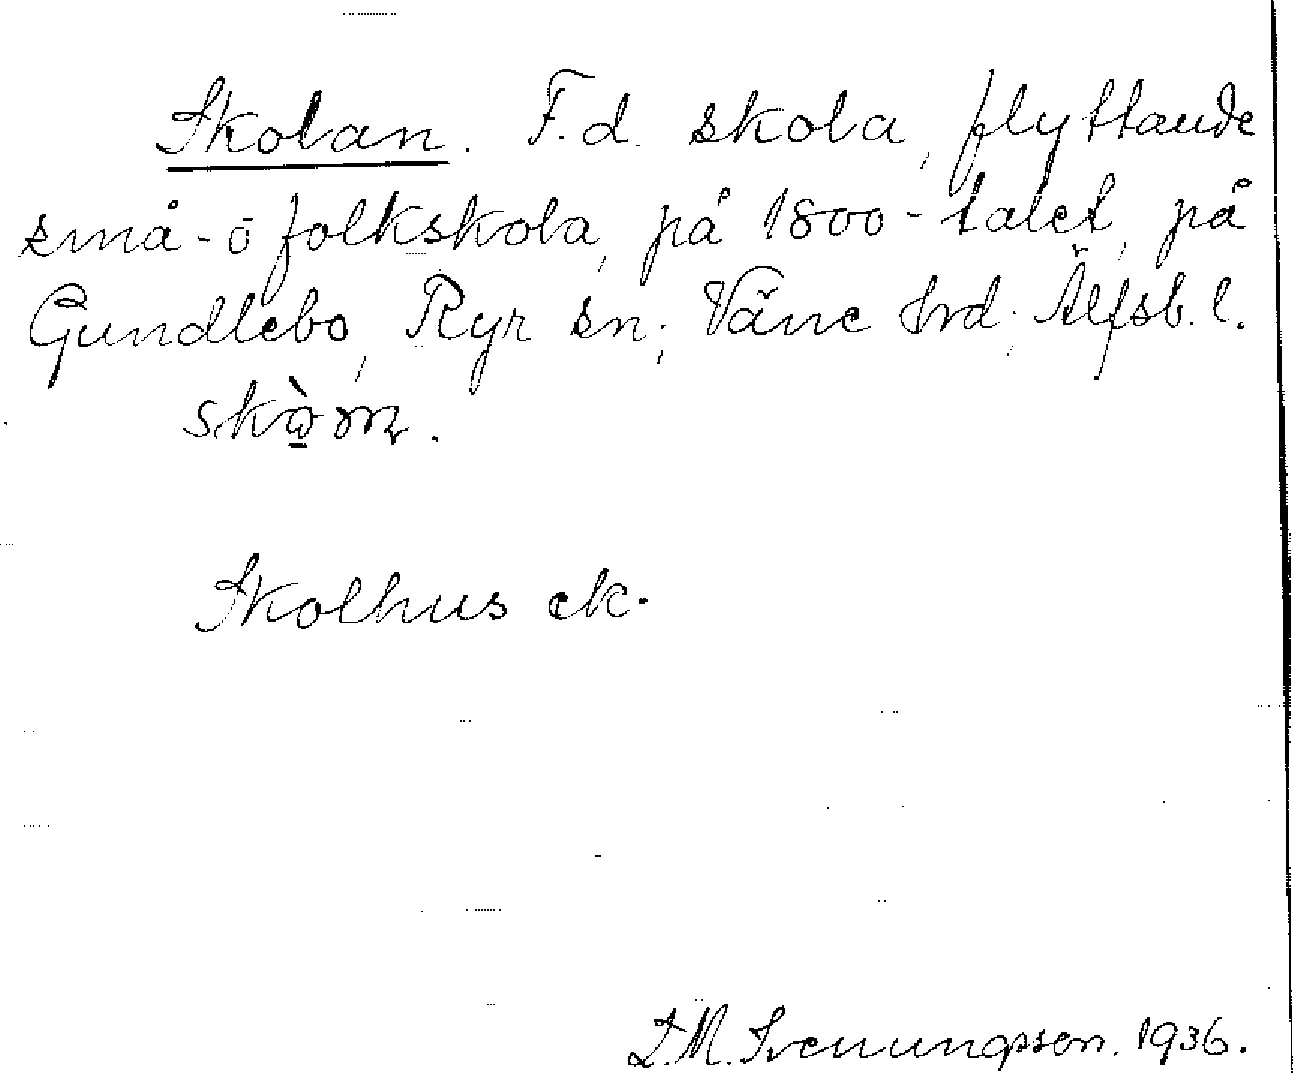 Skolan. F.d. skola, flyttande
små- o folkskola, på 1800-talet, på
Gundlebo, Ryr sn; Väne hrd; Älfsb. l.
Skolhus ek.
D.M. Svenungsson. 1936.